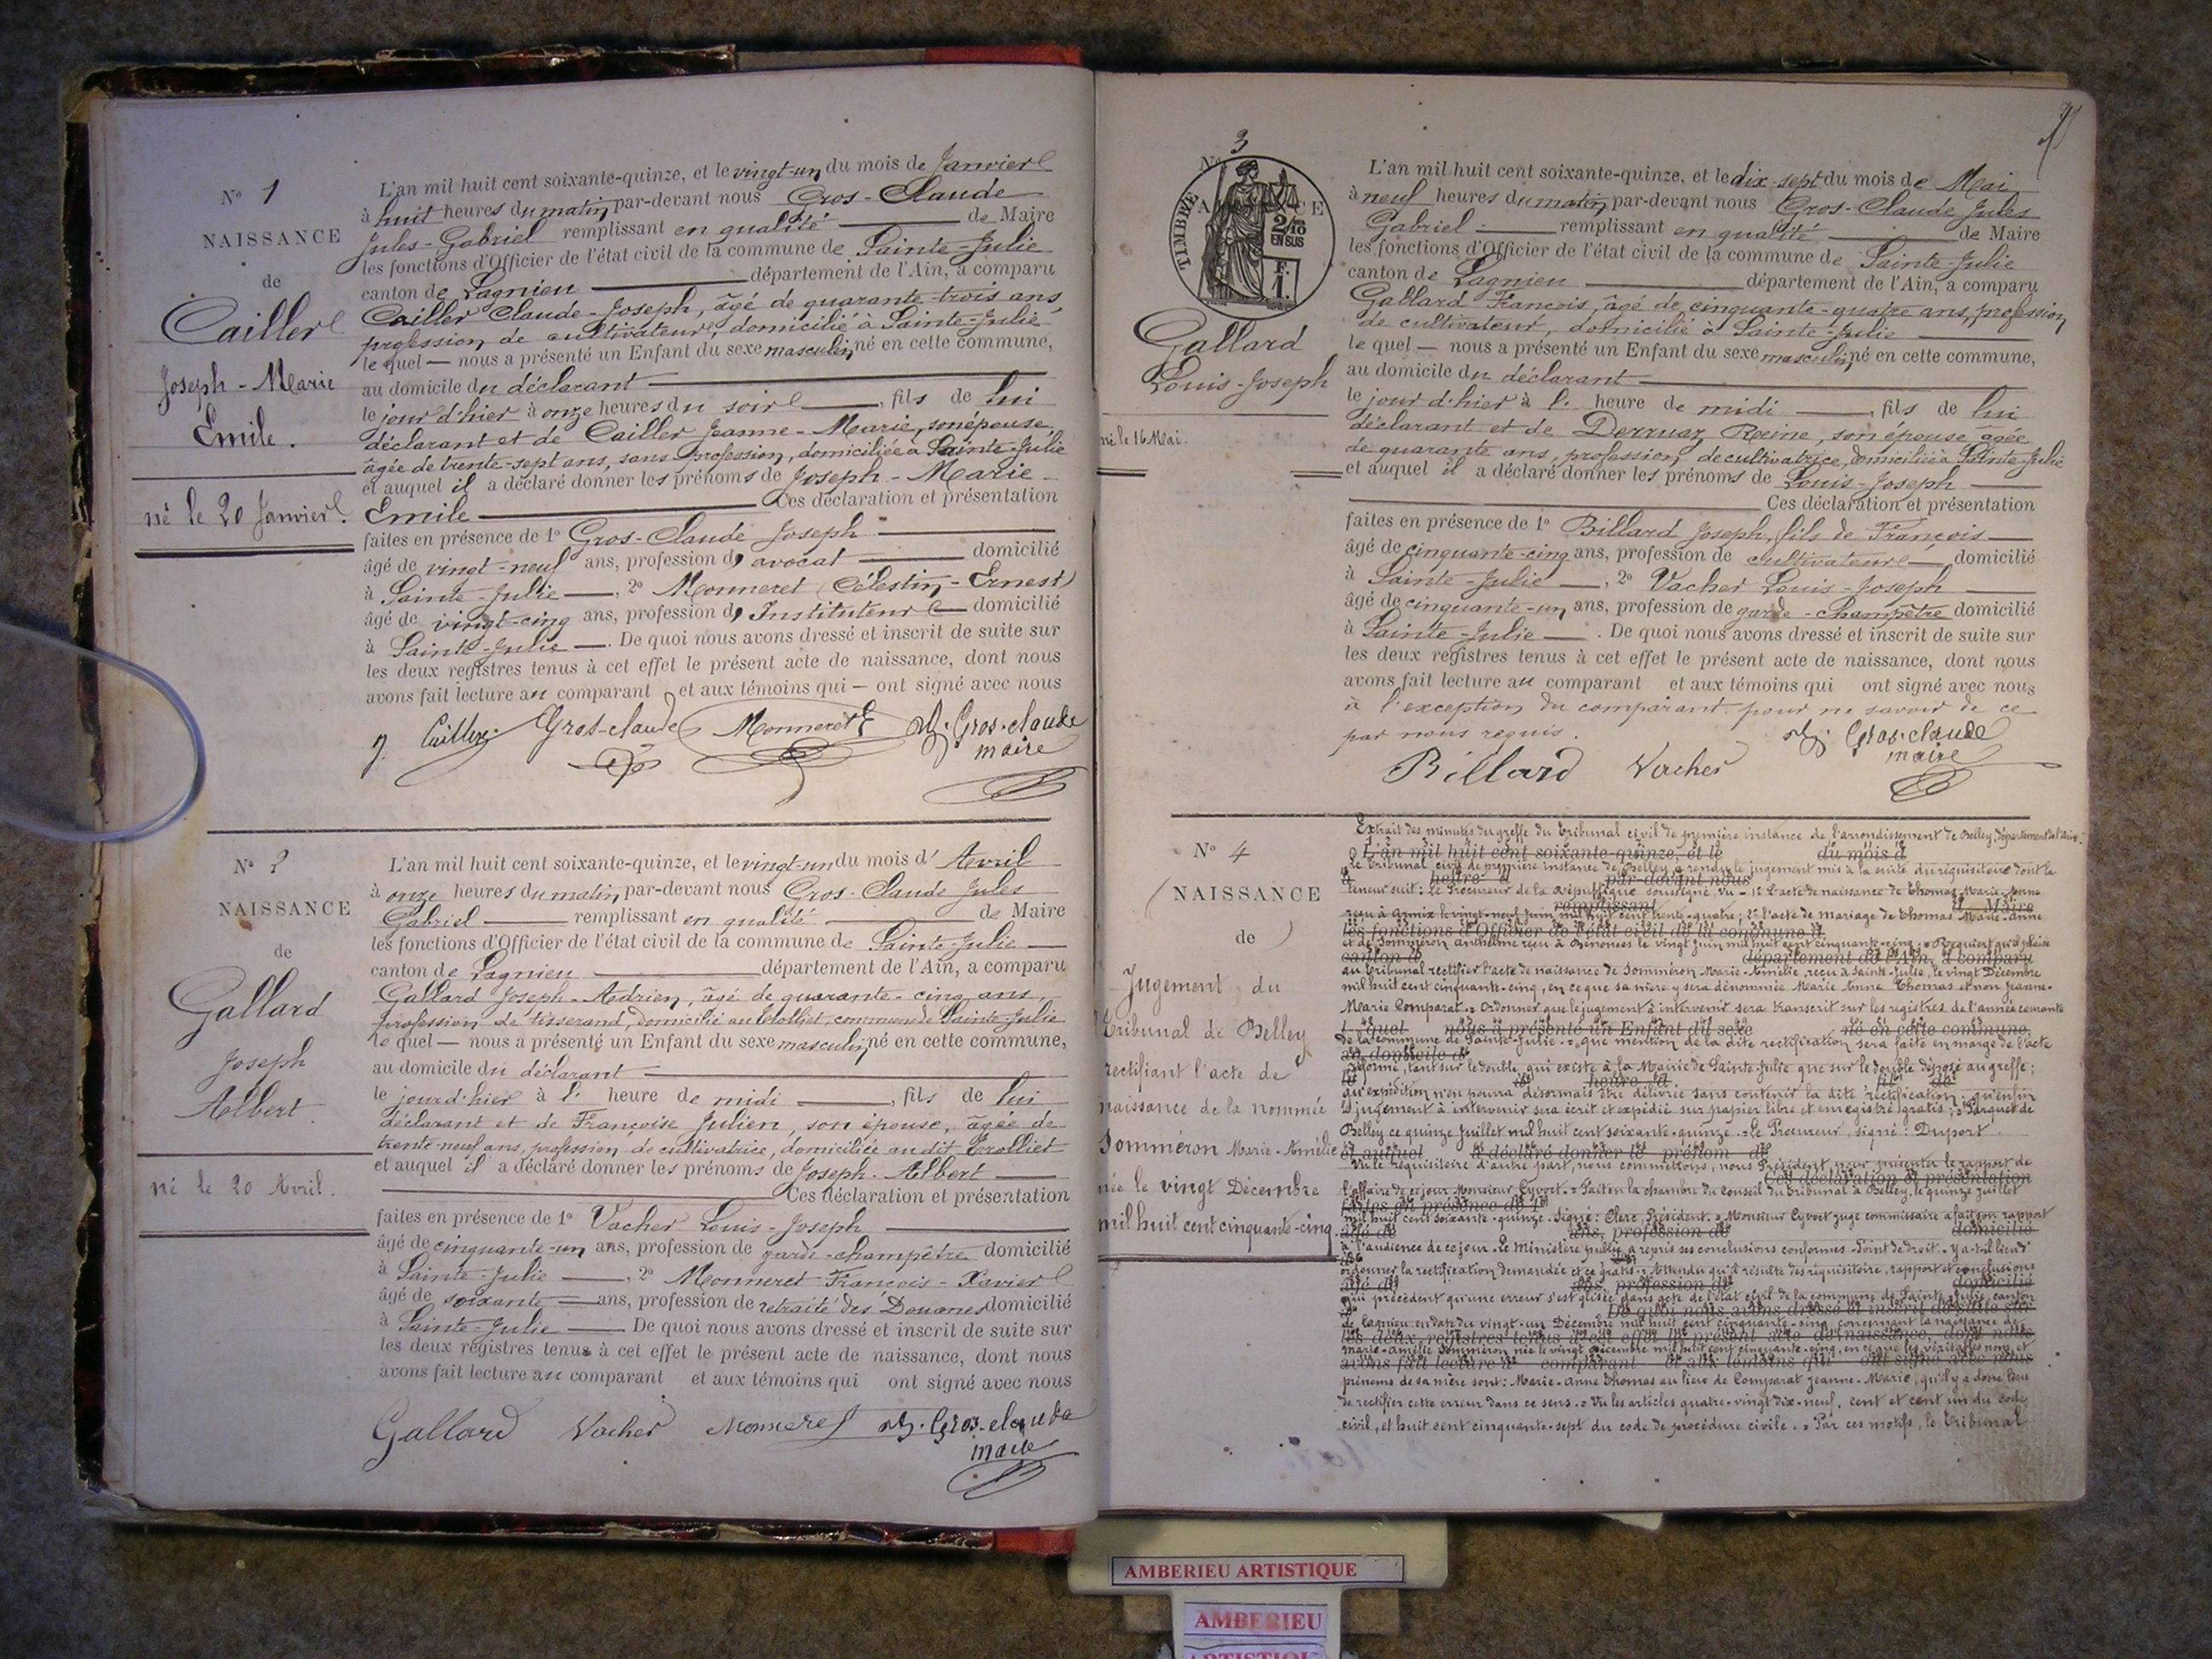 N° 1
NAISSANCE
de
Cailler
Joseph-Marie
Emile.
né le 20 Janvier.
L'an mil huit cent soixante-quinze, et le vingt-un du mois de Janvier
à huit heures du matin, par-devant nous Gros-Claude
Jules-Gabriel remplissant en qualité de Maire
les fonctions d'Officier de l'état civil de la commune de Sainte-Julie
canton de Lagnieu département de l'Ain, a comparu
Cailler Claude-Joseph, âgé de quarante-trois ans
profession de cultivateur, domicilié à Sainte-Julie
le quel — nous a présenté un Enfant du sexe masculin, né en cette commune,
au domicile du déclarant
le jour d'hier à onze heures du soir, fils de lui
déclarant et de Cailler Jeanne-Marie, son épouse,
âgée de trente-sept ans, sans profession, domiciliée à Sainte-Julie
et auquel il a déclaré donner les prénoms de Joseph-Marie-
Emile Ces déclaration et présentation
faites en présence de 1° Gros-Claude Joseph
âgé de vingt-neuf ans, profession d'avocat domicilié
à Sainte-Julie, 2° Monneret Célestin-Ernest
âgé de vingt-cinq ans, profession d'Instituteur domicilié
à Sainte-Julie. De quoi nous avons dressé et inscrit de suite sur
les deux registres tenus à cet effet le présent acte de naissance, dont nous
avons fait lecture au comparant et aux témoins qui — ont signé avec nous
J. Cailler Gros-claude Monneret E J. Gros-claude
maire
N° 2
NAISSANCE
de
Gallard
Joseph
Albert
né le 20 Avril.
L'an mil huit cent soixante-quinze, et le vingt-un du mois d'Avril
à onze heures du matin, par-devant nous Gros-Claude Jules
Gabriel remplissant en qualité de Maire
les fonctions d'Officier de l'état civil de la commune de Sainte-Julie
canton de Lagnieu département de l'Ain, a comparu
Gallard Joseph-Adrien, âgé de quarante-cinq ans,
profession de tisserand, domicilié au Trolliet, commune de Sainte-Julie
le quel — nous a présenté un Enfant du sexe masculin, né en cette commune,
au domicile du déclarant
le jour d'hier à l' heure de midi, fils de lui
déclarant et de Françoise Julien, son épouse, âgée de
trente-neuf ans, profession de cultivatrice, domiciliée au dit Trolliet
et auquel il a déclaré donner les prénoms de Joseph-Albert
Ces déclaration et présentation
faites en présence de 1° Vacher Louis-Joseph
âgé de cinquante-un ans, profession de garde-champêtre domicilié
à Sainte-Julie, 2° Monneret François-Xavier
âgé de soixante ans, profession de retraité des Douanes domicilié
à Sainte-Julie De quoi nous avons dressé et inscrit de suite sur
les deux registres tenus à cet effet le présent acte de naissance, dont nous
avons fait lecture au comparant et aux témoins qui ont signé avec nous
Gallard Vacher Monneret J. Gros-claude
maire
N° 3
TIMBRE
2/10
EN SUS
F.
1.
Gallard
Louis-Joseph
né le 16 Mai.
L'an mil huit cent soixante-quinze, et le dix-sept du mois de Mai
à neuf heures du matin, par-devant nous Gros-Claude Jules
Gabriel remplissant en qualité de Maire
les fonctions d'Officier de l'état civil de la commune de Sainte-Julie
canton de Lagnieu département de l'Ain, a comparu
Gallard François, âgé de cinquante-quatre ans, profession
de cultivateur, domicilié à Sainte-Julie
le quel — nous a présenté un Enfant du sexe masculin, né en cette commune,
au domicile du déclarant
le jour d'hier à l' heure de midi, fils de lui
déclarant et de Derruaz Reine, son épouse âgée
de quarante ans, profession de cultivatrice, domiciliée à Sainte-Julie
et auquel il a déclaré donner les prénoms de Louis-Joseph
Ces déclaration et présentation
faites en présence de 1° Billard Joseph, fils de François
âgé de cinquante-cinq ans, profession de cultivateur domicilié
à Sainte-Julie, 2° Vacher Louis-Joseph
âgé de cinquante-un ans, profession de garde-champêtre domicilié
à Sainte-Julie. De quoi nous avons dressé et inscrit de suite sur
les deux registres tenus à cet effet le présent acte de naissance, dont nous
avons fait lecture au comparant et aux témoins qui ont signé avec nous
à l'exception du comparant pour ne savoir de ce
par nous requis.
Billard Vacher J. Gros-claude
maire
N° 4
NAISSANCE
de
Jugement du
Tribunal de Belley
rectifiant l'acte de
naissance de la nommée
Somméron Marie-Amélie
née le vingt Décembre
mil huit cent cinquante-cinq.
Extrait des minutes du greffe du tribunal civil de première instance de l'arrondissement de Belley, département de l'Ain.
L'an mil huit cent soixante-quinze, et le du mois d
Le tribunal civil de première instance de Belley a rendu le jugement mis à la suite du réquisitoire dont la
à heure d par-devant nous
teneur suit: Le Procureur de la République soussigné, Vu - 1° l'acte de naissance de Thomas Marie-Anne
remplissant d Maire
reçu à Armix le vingt-neuf Juin mil huit cent trente-quatre; 2° l'acte de mariage de Thomas Marie-Anne
les fonctions d'Officier de l'état civil de la commune d
et de Somméron Anthelme reçu à Bénonces le vingt Juin mil huit cent cinquante-cinq; Requiert qu'il plaise
canton d département de l'Ain, a comparu
au tribunal rectifier l'acte de naissance de Somméron Marie-Amélie, reçu à Sainte-Julie, le vingt Décembre
mil huit cent cinquante-cinq, en ce que sa mère y sera dénommée Marie Anne Thomas et non Jeanne-
Marie Comparat. Ordonner que le jugement à intervenir sera transcrit sur les registres de l'année courante
l quel nous a présenté un Enfant du sexe né en cette commune,
de la commune de Sainte-Julie. que mention de la dite rectification sera faite en marge de l'acte
au domicile d
réformé, tant sur le double qui existe à la Mairie de Sainte-Julie que sur le double déposé au greffe;
le heure d fil de
qu'expédition n'en pourra désormais être délivrée sans contenir la dite rectification; qu'enfin
le jugement à intervenir sera écrit et expédié sur papier libre et enregistré gratis; Parquet de
Belley ce quinze Juillet mil huit cent soixante-quinze. Le Procureur, signé: Duport.
et auquel a déclaré donner le prénom de
Vu le réquisitoire d'autre part, nous commettons, nous Président, pour présenter le rapport de
Ces déclaration et présentation
l'affaire de ce jour Monsieur Cyvoct. Fait en la chambre du conseil du tribunal à Belley, le quinze Juillet
faites en présence de 1°
mil huit cent soixante-quinze. Signé: Clerc, Président. Monsieur Cyvoct juge commissaire a fait son rapport
âgé de ans, profession de domicilié
à l'audience de ce jour. Le Ministère public a repris ses conclusions conformes. Point de droit. y a-t-il lieu d'
ordonner la rectification demandée et ce gratis. Attendu qu'il résulte des réquisitoire, rapport et conclusions
âgé de ans, profession de domicilié
qui précèdent qu'une erreur s'est glissée dans acte de l'état civil de la commune de Sainte-Julie, canton
De quoi nous avons dressé et inscrit de suite sur
de Lagnieu en date du vingt-un Décembre mil huit cent cinquante-cinq concernant la naissance de
les deux registres tenus à cet effet le présent acte de naissance, dont nous
Marie-Amélie Somméron née le vingt Décembre mil huit cent cinquante-cinq, en ce que les véritables nom et
avons fait lecture à comparant et aux témoins qui ont signé avec nous
prénoms de sa mère sont: Marie-Anne Thomas au lieu de Comparat Jeanne-Marie, qu'il y a donc lieu
de rectifier cette erreur dans ce sens. Vu les articles quatre-vingt dix-neuf, cent et cent un du code
civil, et huit cent cinquante-sept du code de procédure civile. Par ces motifs, le tribunal
AMBERIEU ARTISTIQUE
AMBERIEU
ARTISTIQUE